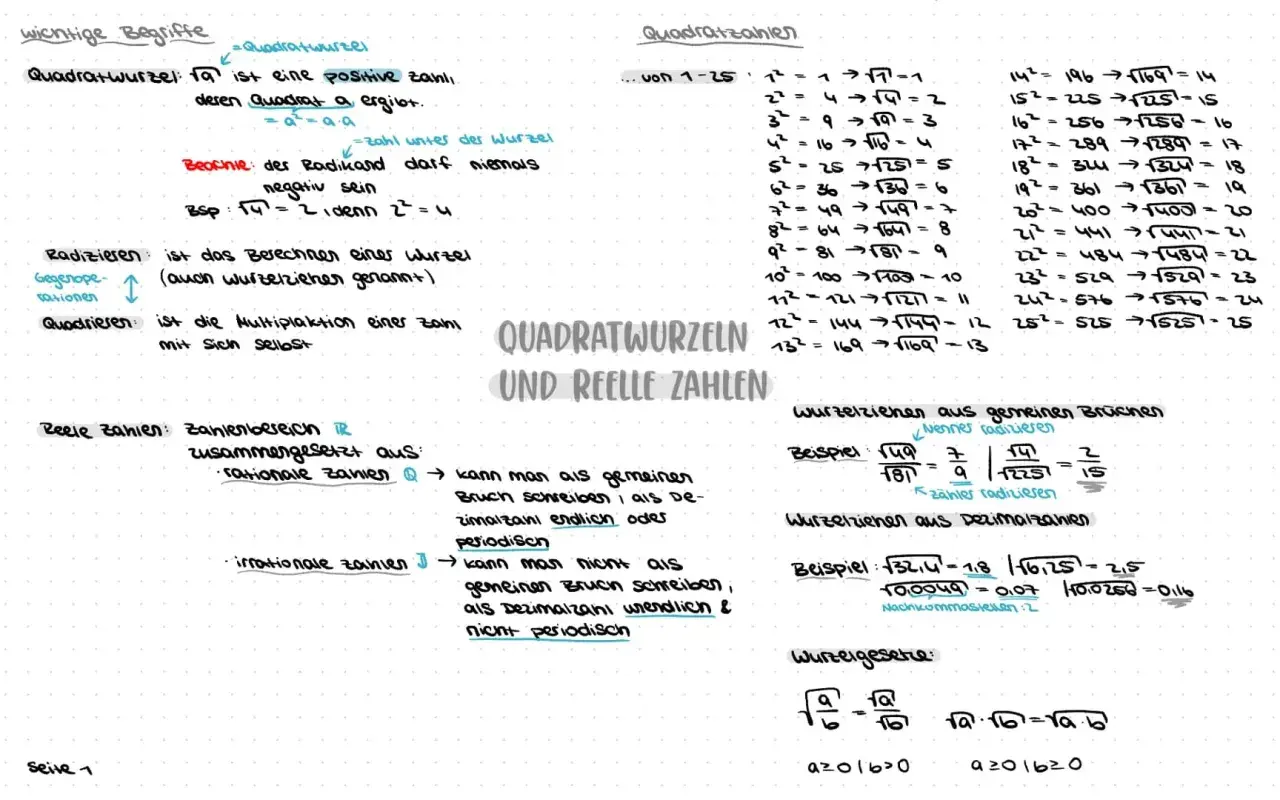 wichtige Begriffe
= Quadratwurzel
Quadratwurzel: √a ist eine positive Zahl,
deren Quadrat a ergibt.
= a² = a·a
= Zahl unter der Wurzel
Beachte: der Radikand darf niemals
negativ sein
Bsp: √4 = 2, denn 2² = 4
Radizieren: ist das Berechnen einer Wurzel
(auch Wurzelziehen genannt)
Gegenope-
rationen
Quadrieren: ist die Multiplaktion einer Zahl
mit sich selbst
Quadratzahlen
... von 1-25 :
1² = 1 → √1 = 1
2² = 4 → √4 = 2
3² = 9 → √9 = 3
4² = 16 → √16 = 4
5² = 25 → √25 = 5
6² = 36 → √36 = 6
7² = 49 → √49 = 7
8² = 64 → √64 = 8
9² = 81 → √81 = 9
10² = 100 → √100 = 10
11² = 121 → √121 = 11
12² = 144 → √144 = 12
13² = 169 → √169 = 13
14² = 196 → √169 = 14
15² = 225 → √225 = 15
16² = 256 → √256 = 16
17² = 289 → √289 = 17
18² = 324 → √324 = 18
19² = 361 → √361 = 19
20² = 400 → √400 = 20
21² = 441 → √441 = 21
22² = 484 → √484 = 22
23² = 529 → √529 = 23
24² = 576 → √576 = 24
25² = 525 → √525 = 25
QUADRATWURZELN
UND REELLE ZAHLEN
Reele Zahlen: Zahlenbereich ℝ
zusammengesetzt aus:
· rationale Zahlen ℚ → kann man als gemeinen
Bruch schreiben, als De-
zimalzahl endlich oder
periodisch
· irrationale Zahlen 𝕀 → kann man nicht als
gemeinen Bruch schreiben,
als Dezimalzahl unendlich &
nicht periodisch
Wurzelziehen aus gemeinen Brüchen
Nenner radizieren
Beispiel: √49/√81 = 7/9 | √4/√225 = 2/15
Zähler radizieren
Wurzelziehen aus Dezimalzahlen
Beispiel: √32,4 = 1,8 | √6,25 = 2,5
√0,0049 = 0,07 | √0,0256 = 0,16
Nachkommastellen : 2
Wurzelgesetze:
√(a/b) = √a/√b √a · √b = √a·b
a ≥ 0 | b > 0 a ≥ 0 | b ≥ 0
Seite 1